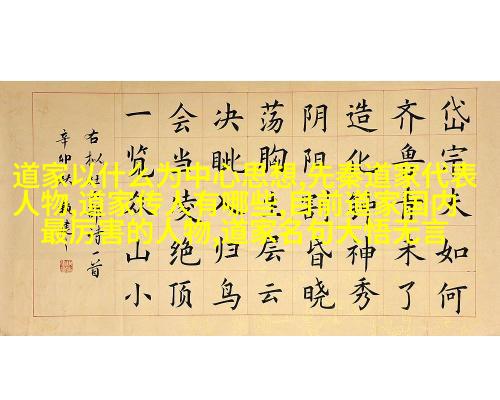 道家以什么为中心思想,先秦道家代表
人物,道家传人有哪些,目前道家国内
最厉害的人物,道家名句大悟无言
岱宗夫如何
齐鲁青未了
造化钟神秀
阴阳割昏晓
荡胸生层云
决眦入归鸟
会当凌绝顶
一览众山小
右拟诗一首
辛卯秋